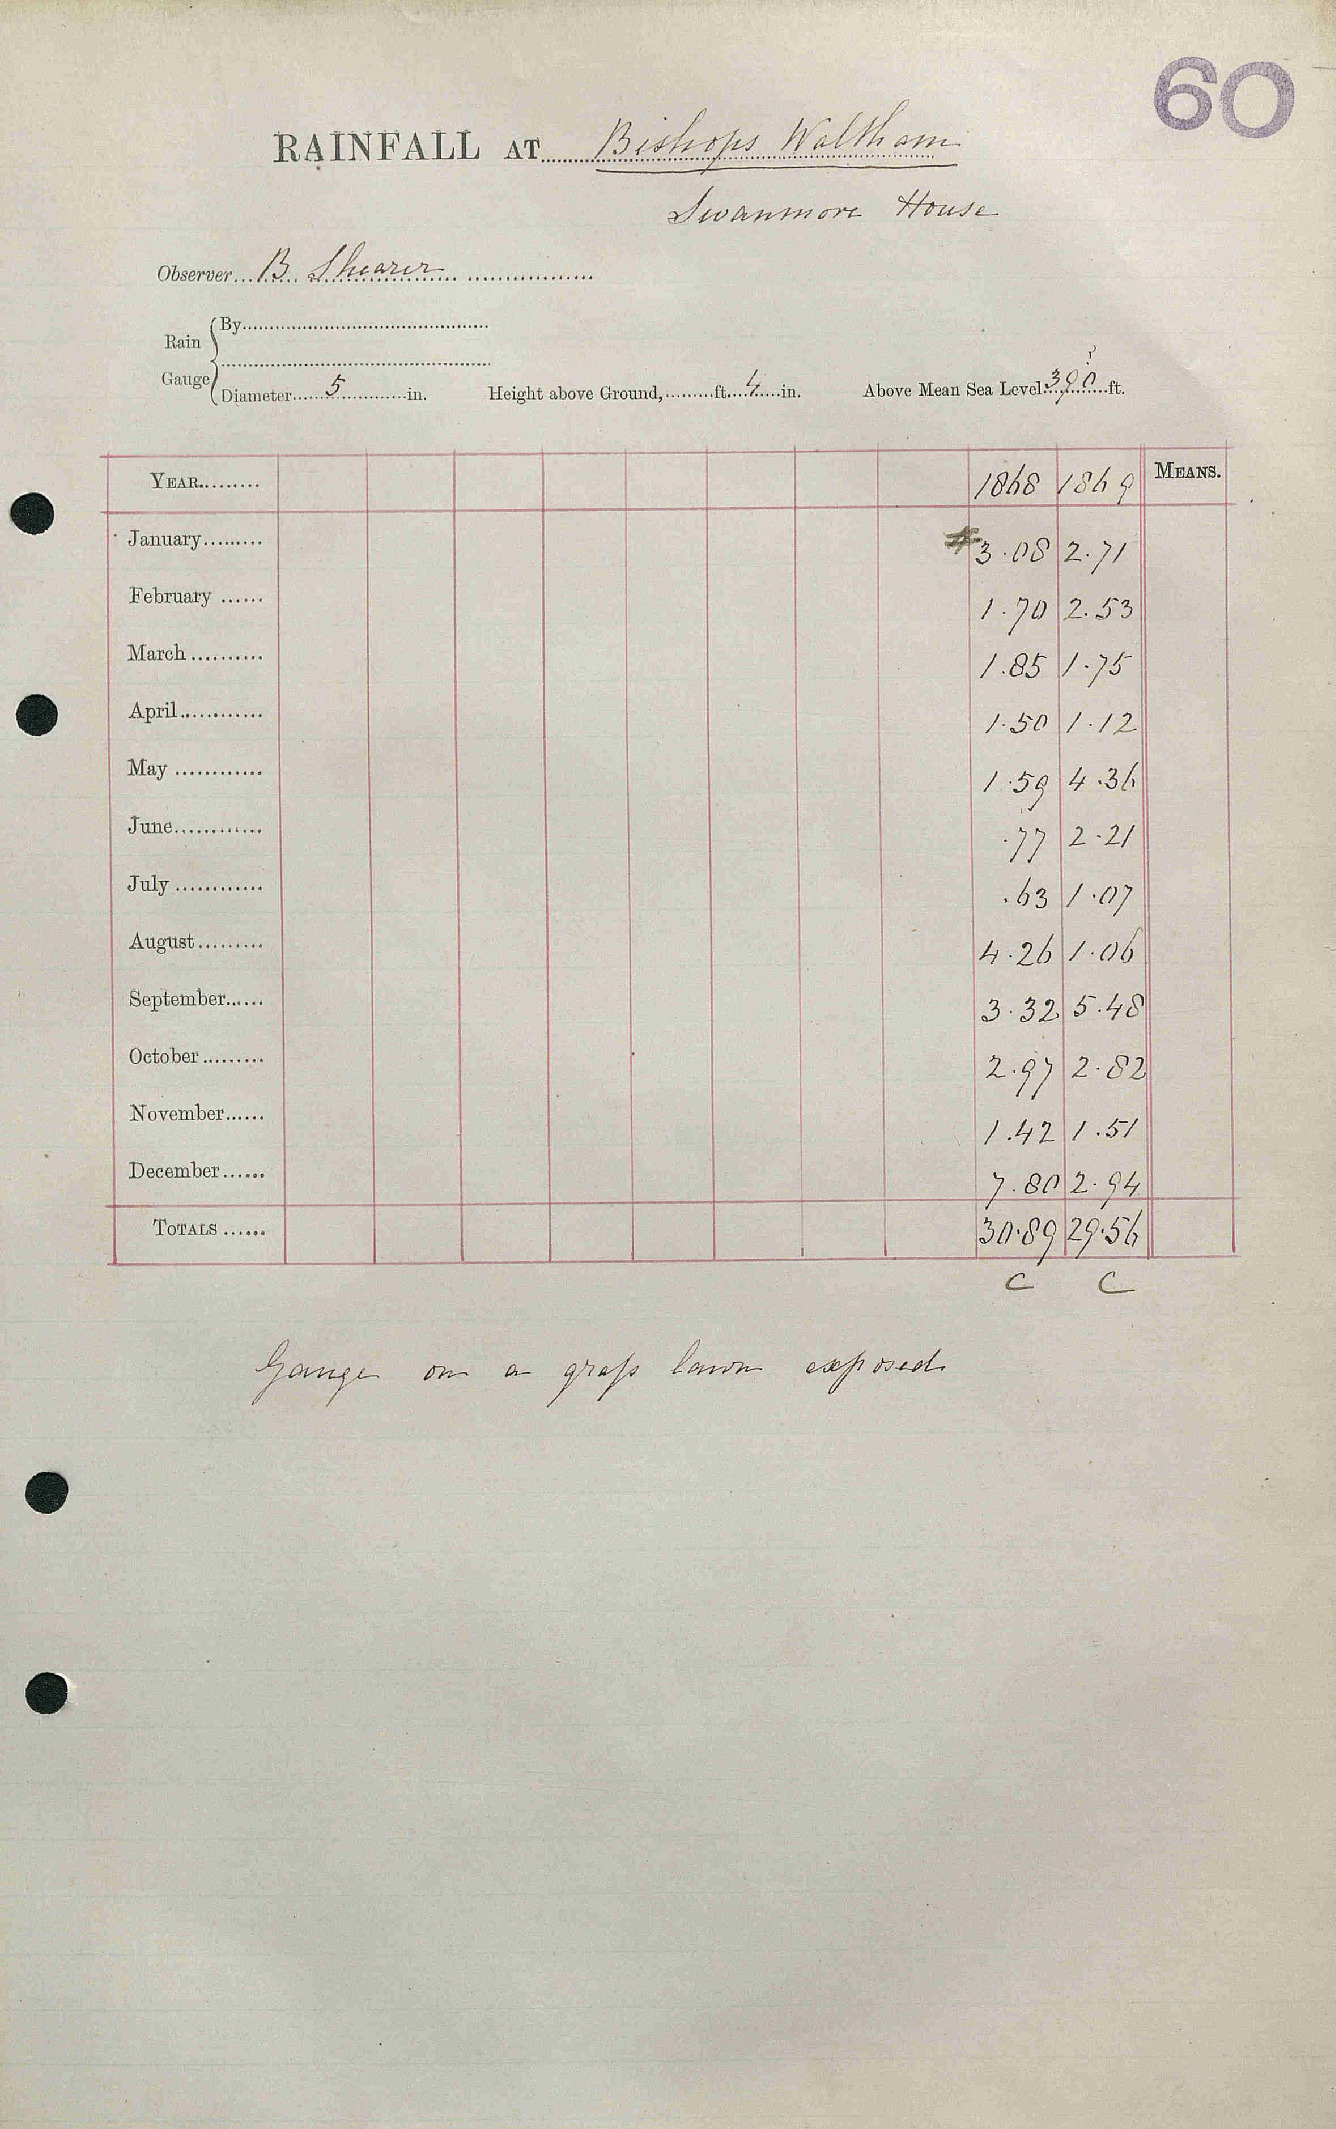 60
RAINFALL AT Bishops Waltham
Swanmore House
Observer B Shearer
Rain Gauge
By
Diameter 5 in. Height above Ground, ft. 4 in. Above Mean Sea Level 390 ? ft.
YEAR 1868 1869 MEANS.
January # 3.08 2.71
February 1.70 2.53
March 1.85 1.75
April 1.50 1.12
May 1.59 4.36
June .77 2.21
July .63 1.07
August 4.26 1.06
September 3.32 5.48
October 2.97 2.82
November 1.42 1.51
December 7.80 2.94
TOTALS 30.89 29.56
C C
Gauge on a grass lawn exposed